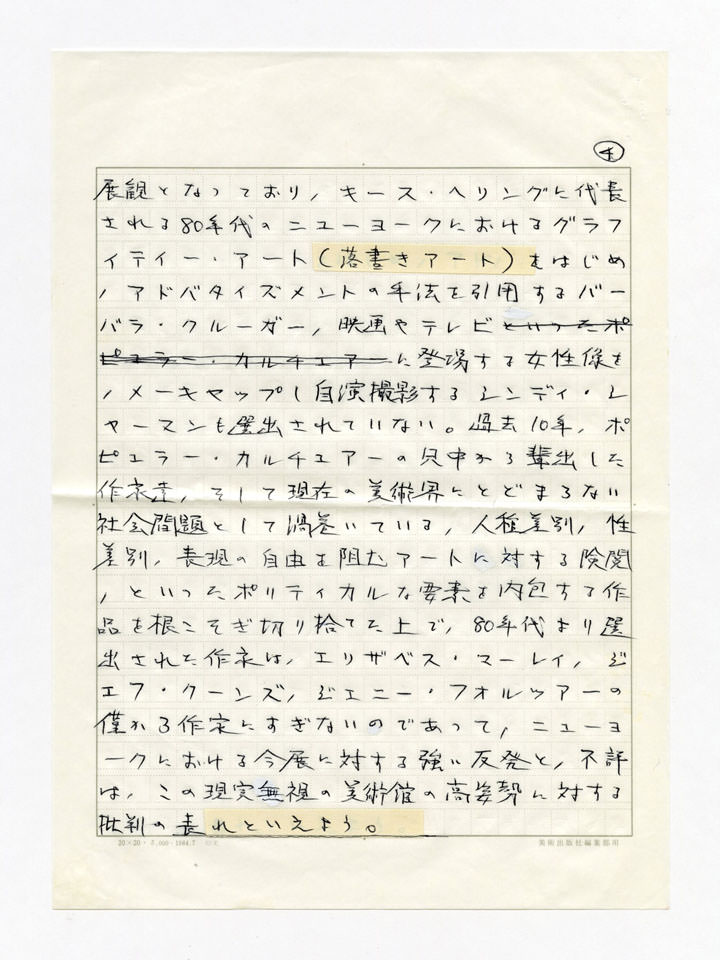 ④
展観となっており，キース・ヘリングに代表
される80年代のニューヨークにおけるグラフ
ィティー・アート（落書きアート）をはじめ
，アドバタイズメントの手法を引用するバー
バラ・クルーガー，映画やテレビといったポ
ピュラー・カルチュアーに登場する女性像を
，メーキャップし自演撮影するシンディ・シ
ャーマンも選出されていない。過去10年，ポ
ピュラー・カルチュアーの只中から輩出した
作家達，そして現在の美術界にとどまらない
社会問題として渦巻いている，人種差別，性
差別，表現の自由を阻むアートに対する険閲
，といったポリティカルな要素を内包する作
品を根こそぎ切り捨てた上で，80年代より選
出された作家は，エリザベス・マーレイ，ジ
エフ・クーンズ，ジェニー・フォルツアーの
僅から作家にすぎないのであって，ニューヨ
ークにおける今展に対する強い反発と，不評
は，この現実無視の美術館の高姿勢に対する
批判の表れといえよう。
20×20・5,000・1984.7
美術出版社編集部用